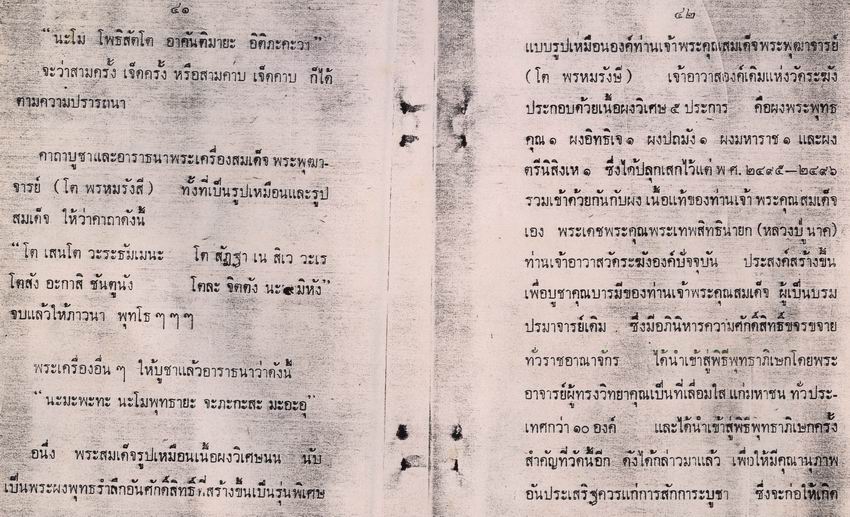 ๔๑
“นะโม โพธิสัตโต อาคันติมายะ อิติภะคะวา”
จะว่าสามครั้ง เจ็ดครั้ง หรือสามคาบ เจ็ดคาบ ก็ได้
ตามความปรารถนา
คาถาบูชาและอาราธนาพระเครื่องสมเด็จ พระพุฒา-
จารย์ (โต พรหมรังสี) ทั้งที่เป็นรูปเหมือนและรูป
สมเด็จ ให้ว่าคาถาดังนี้
“โต เสนโต วะระธัมเมนะ โต สัฏฐา เน สิเว วะเร
โตสัง อะกาสิ ชันตูนัง โตละ จิตตัง นะ มิหัง”
จบแล้วให้ภาวนา พุทโธ ๆ ๆ ๆ
พระเครื่องอื่น ๆ ให้บูชาแล้วอาราธนาว่าดังนี้
“นะมะพะทะ นะโมพุทธายะ จะภะกะสะ มะอะอุ”
อนึ่ง พระสมเด็จรูปเหมือนเนื้อผงวิเศษนน นับ
เป็นพระผงพุทธรำลึกอันศักดิ์สิทธิ์ที่สร้างขึ้นเป็นรุ่นพิเศษ
๔๒
แบบรูปเหมือนองค์ท่านเจ้าพระคุณสมเด็จพระพุฒาจารย์
(โต พรหมรังษี) เจ้าอาวาสองค์เดิมแห่งวัดระฆัง
ประกอบด้วยเนื้อผงวิเศษ ๕ ประการ คือผงพระพุทธ
คุณ ๑ ผงอิทธิเจ ๑ ผงปถมัง ๑ ผงมหาราช ๑ และผง
ตรีนิสิงเห ๑ ซึ่งได้ปลุกเสกไว้แต่ พ.ศ. ๒๔๙๕—๒๔๙๖
รวมเข้าด้วยกันกับผง เนื้อแท้ของท่านเจ้า พระคุณสมเด็จ
เอง พระเดชพระคุณพระเทพสิทธินายก (หลวงปู่ นาค)
ท่านเจ้าอาวาสวัดระฆังองค์ปัจจุบัน ประสงค์สร้างขึ้น
เพื่อบูชาคุณบารมีของท่านเจ้าพระคุณสมเด็จ ผู้เป็นบรม
ปรมาจารย์เดิม ซึ่งมีอภินิหารความศักดิ์สิทธิ์ขจรขจาย
ทั่วราชอาณาจักร ได้นำเข้าสู่พิธีพุทธาภิเษกโดยพระ
อาจารย์ผู้ทรงวิทยาคุณเป็นที่เลื่อมใส แก่มหาชน ทั่วประ-
เทศกว่า ๑๐ องค์ และได้นำเข้าสู่พิธีพุทธาภิเษกครั้ง
สำคัญที่วัดนี้อีก ดังได้กล่าวมาแล้ว เพื่อให้มีคุณานุภาพ
อันประเสริฐควรแก่การสักการะบูชา ซึ่งจะก่อให้เกิด